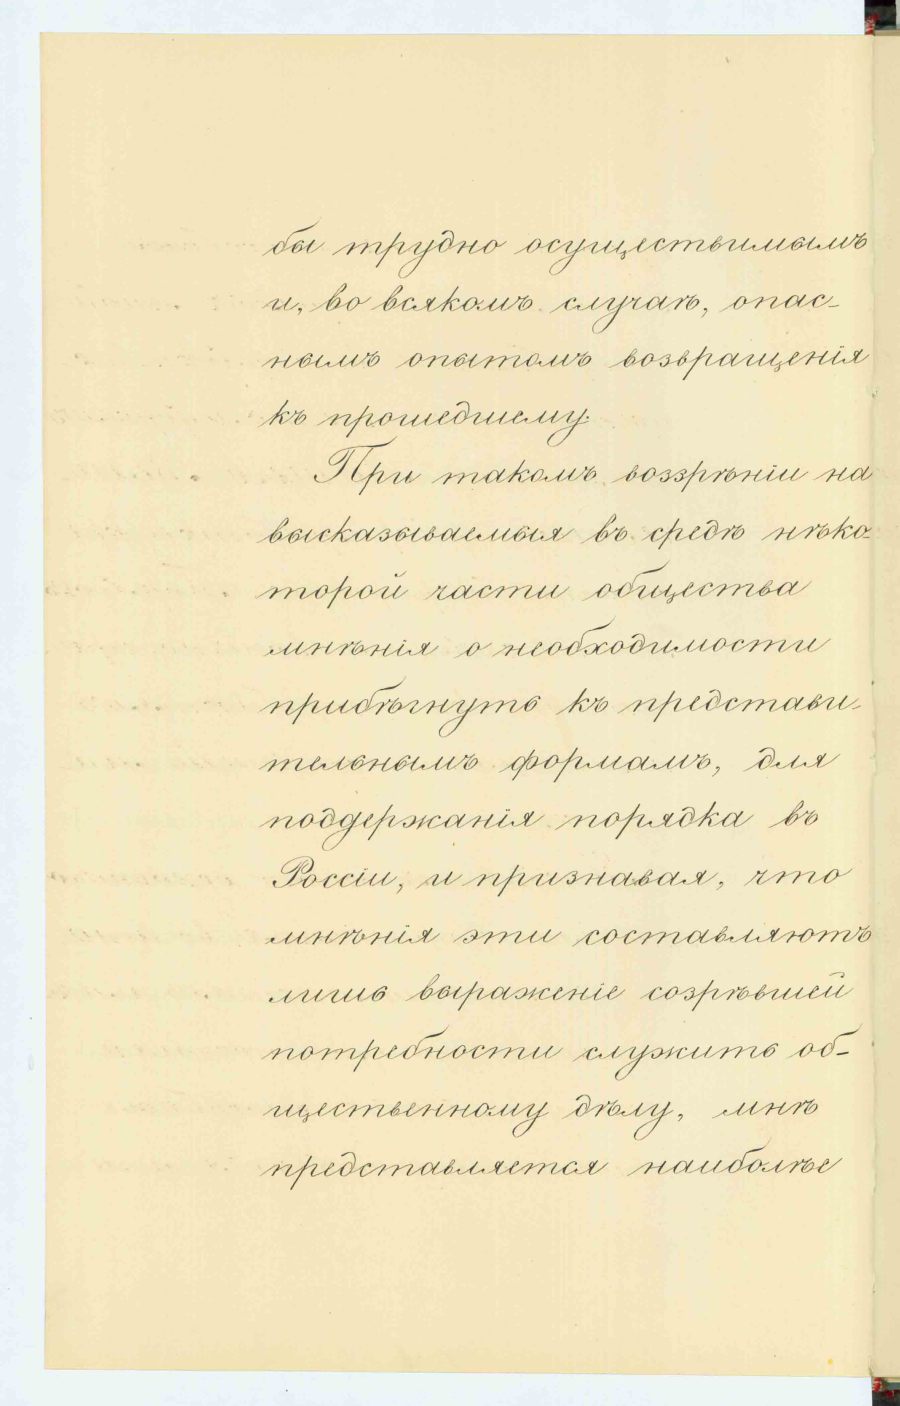 бы трудно осуществимымъ
и, во всякомъ случаѣ, опас-
нымъ опытомъ возвращенія
къ прошедшему.
При такомъ воззрѣніи на
высказываемыя въ средѣ нѣко-
торой части общества
мнѣнія о необходимости
прибѣгнуть къ представи-
тельнымъ формамъ, для
поддержанія порядка въ
Россіи, и признавая, что
мнѣнія эти составляютъ
лишь выраженіе созрѣвшей
потребности служить об-
щественному дѣлу, мнѣ
представляется наиболѣе